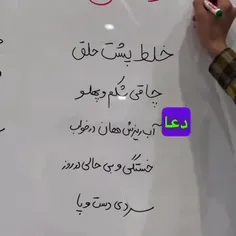 خلط پشت حلق
چاقی شکم و پهلو
آب ریزش دهان در خواب
دعا
خستگی و بی حالی در روز
سردی دست و پا